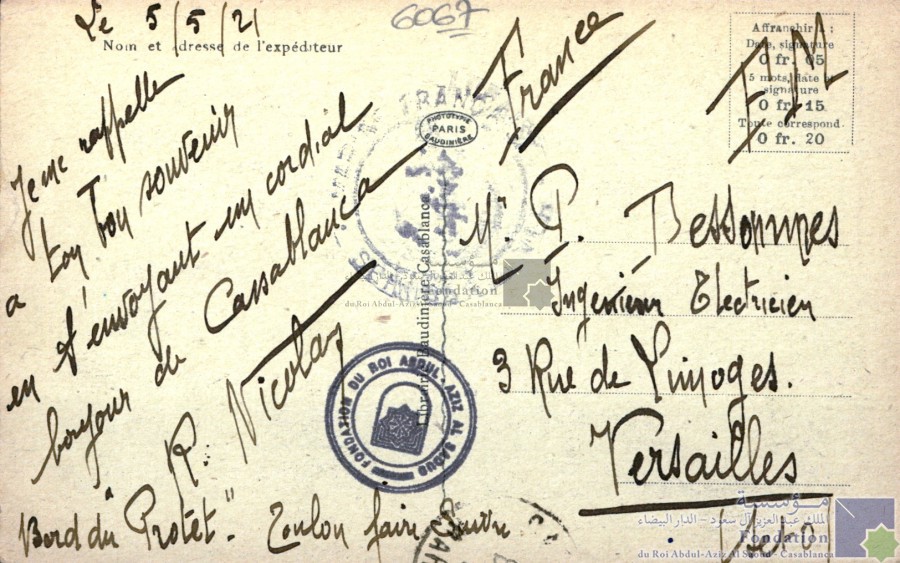 Le 5/5/21
Nom et adresse de l'expéditeur
6067
Je me rappelle
a ton bon souvenir
en t'envoyant un cordial
bonjour de Casablanca
R. Nicolas
Bord du "Protet". Toulon faire suivre
France
FM
Affranchir à :
Date, signature
0 fr. 05
5 mots, date et
signature
0 fr. 15
Toute correspond.
0 fr. 20
Mr. P. Bessonnes
Ingénieur Electricien
3 Rue de Limoges.
Versailles
PHOTOTYPIE
PARIS
BAUDINIÈRE
Librairie Baudinière Casablanca
FONDATION DU ROI ABDUL-AZIZ AL SAOUD
الملك عبد العزيز آل سعود - الدار البيضاء
Fondation
du Roi Abdul-Aziz Al Saoud - Casablanca
مؤسسة
الملك عبد العزيز آل سعود - الدار البيضاء
Fondation
du Roi Abdul-Aziz Al Saoud - Casablanca